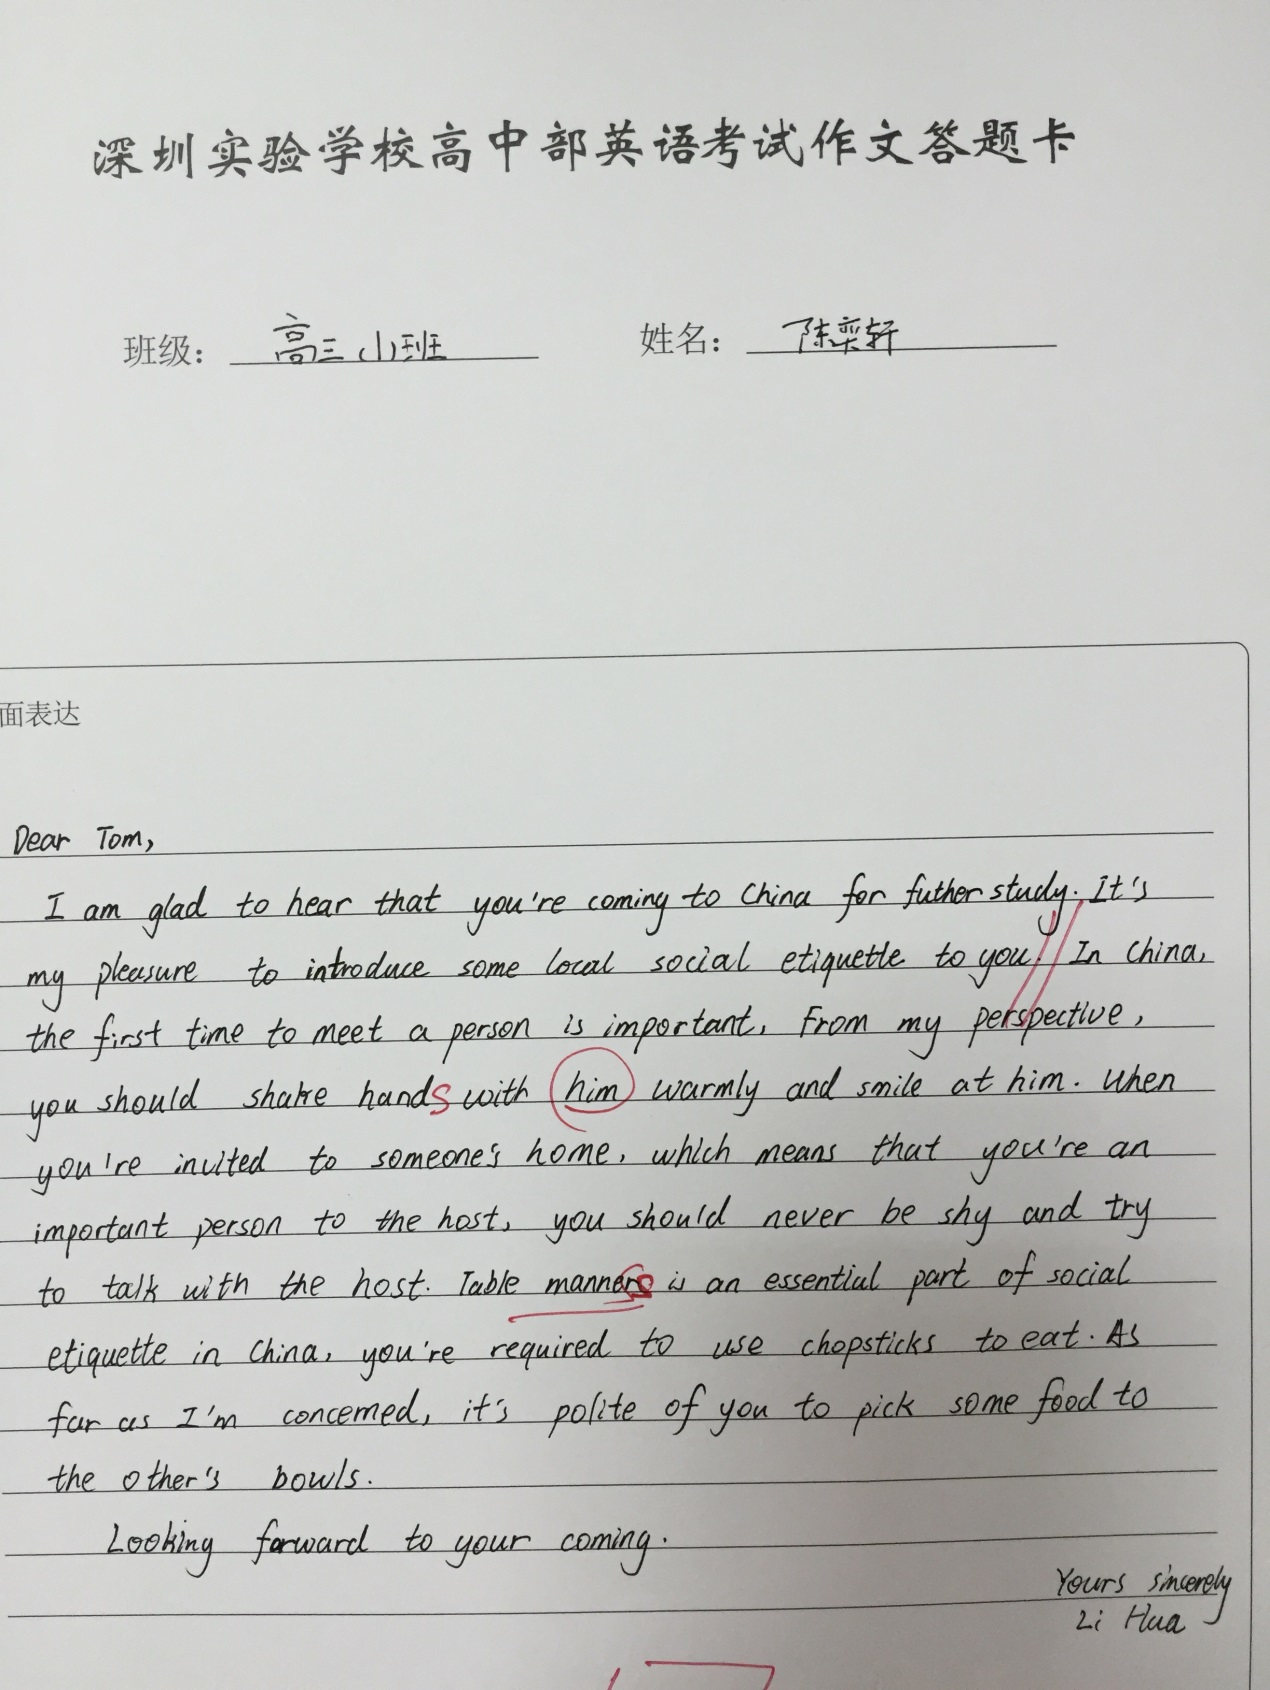 深圳实验学校高中部英语考试作文答题卡
班级： 高三小班 姓名： 陈奕轩
面表达
Dear Tom,
I am glad to hear that you're coming to China for futher study. It's
my pleasure to introduce some local social etiquette to you. In China,
the first time to meet a person is important. From my perspective,
you should shake hands with him warmly and smile at him. When
you're invited to someone's home, which means that you're an
important person to the host, you should never be shy and try
to talk with the host. Table manners is an essential part of social
etiquette in China, you're required to use chopsticks to eat. As
far as I'm concerned, it's polite of you to pick some food to
the other's bowls.
Looking forward to your coming.
Yours sincerely
Li Hua